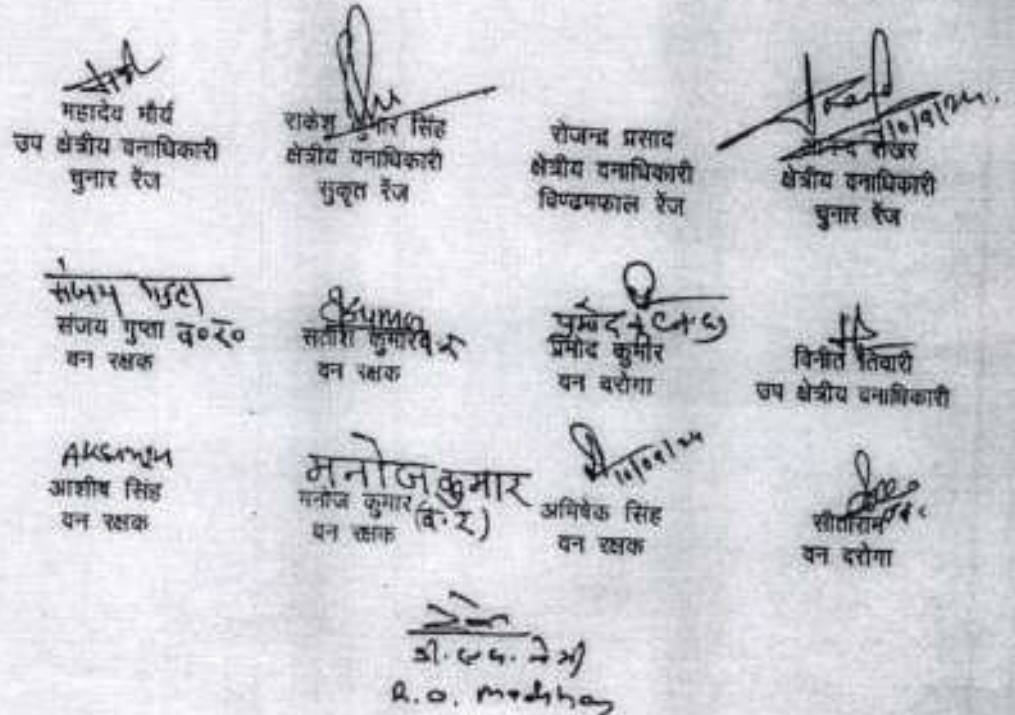 महादेव मौर्य
उप क्षेत्रीय वनाधिकारी
चुनार रेंज
राकेश कुमार सिंह
क्षेत्रीय वनाधिकारी
सुकृत रेंज
रोजन्द्र प्रसाद
क्षेत्रीय वनाधिकारी
विण्ढमफाल रेंज
10/9/24.
क्षेत्रीय वनाधिकारी
चुनार रेंज
संजय गुप्ता
संजय गुप्ता व०र०
वन रक्षक
सतीश कुमार व र
वन रक्षक
प्रमोद कुमार
वन दरोगा
विनीत तिवारी
उप क्षेत्रीय वनाधिकारी
आशीष सिंह
वन रक्षक
मनोज कुमार
मनोज कुमार (व.र)
वन रक्षक
10/09/24
अभिषेक सिंह
वन रक्षक
सीताराम
वन दरोगा
R.O.